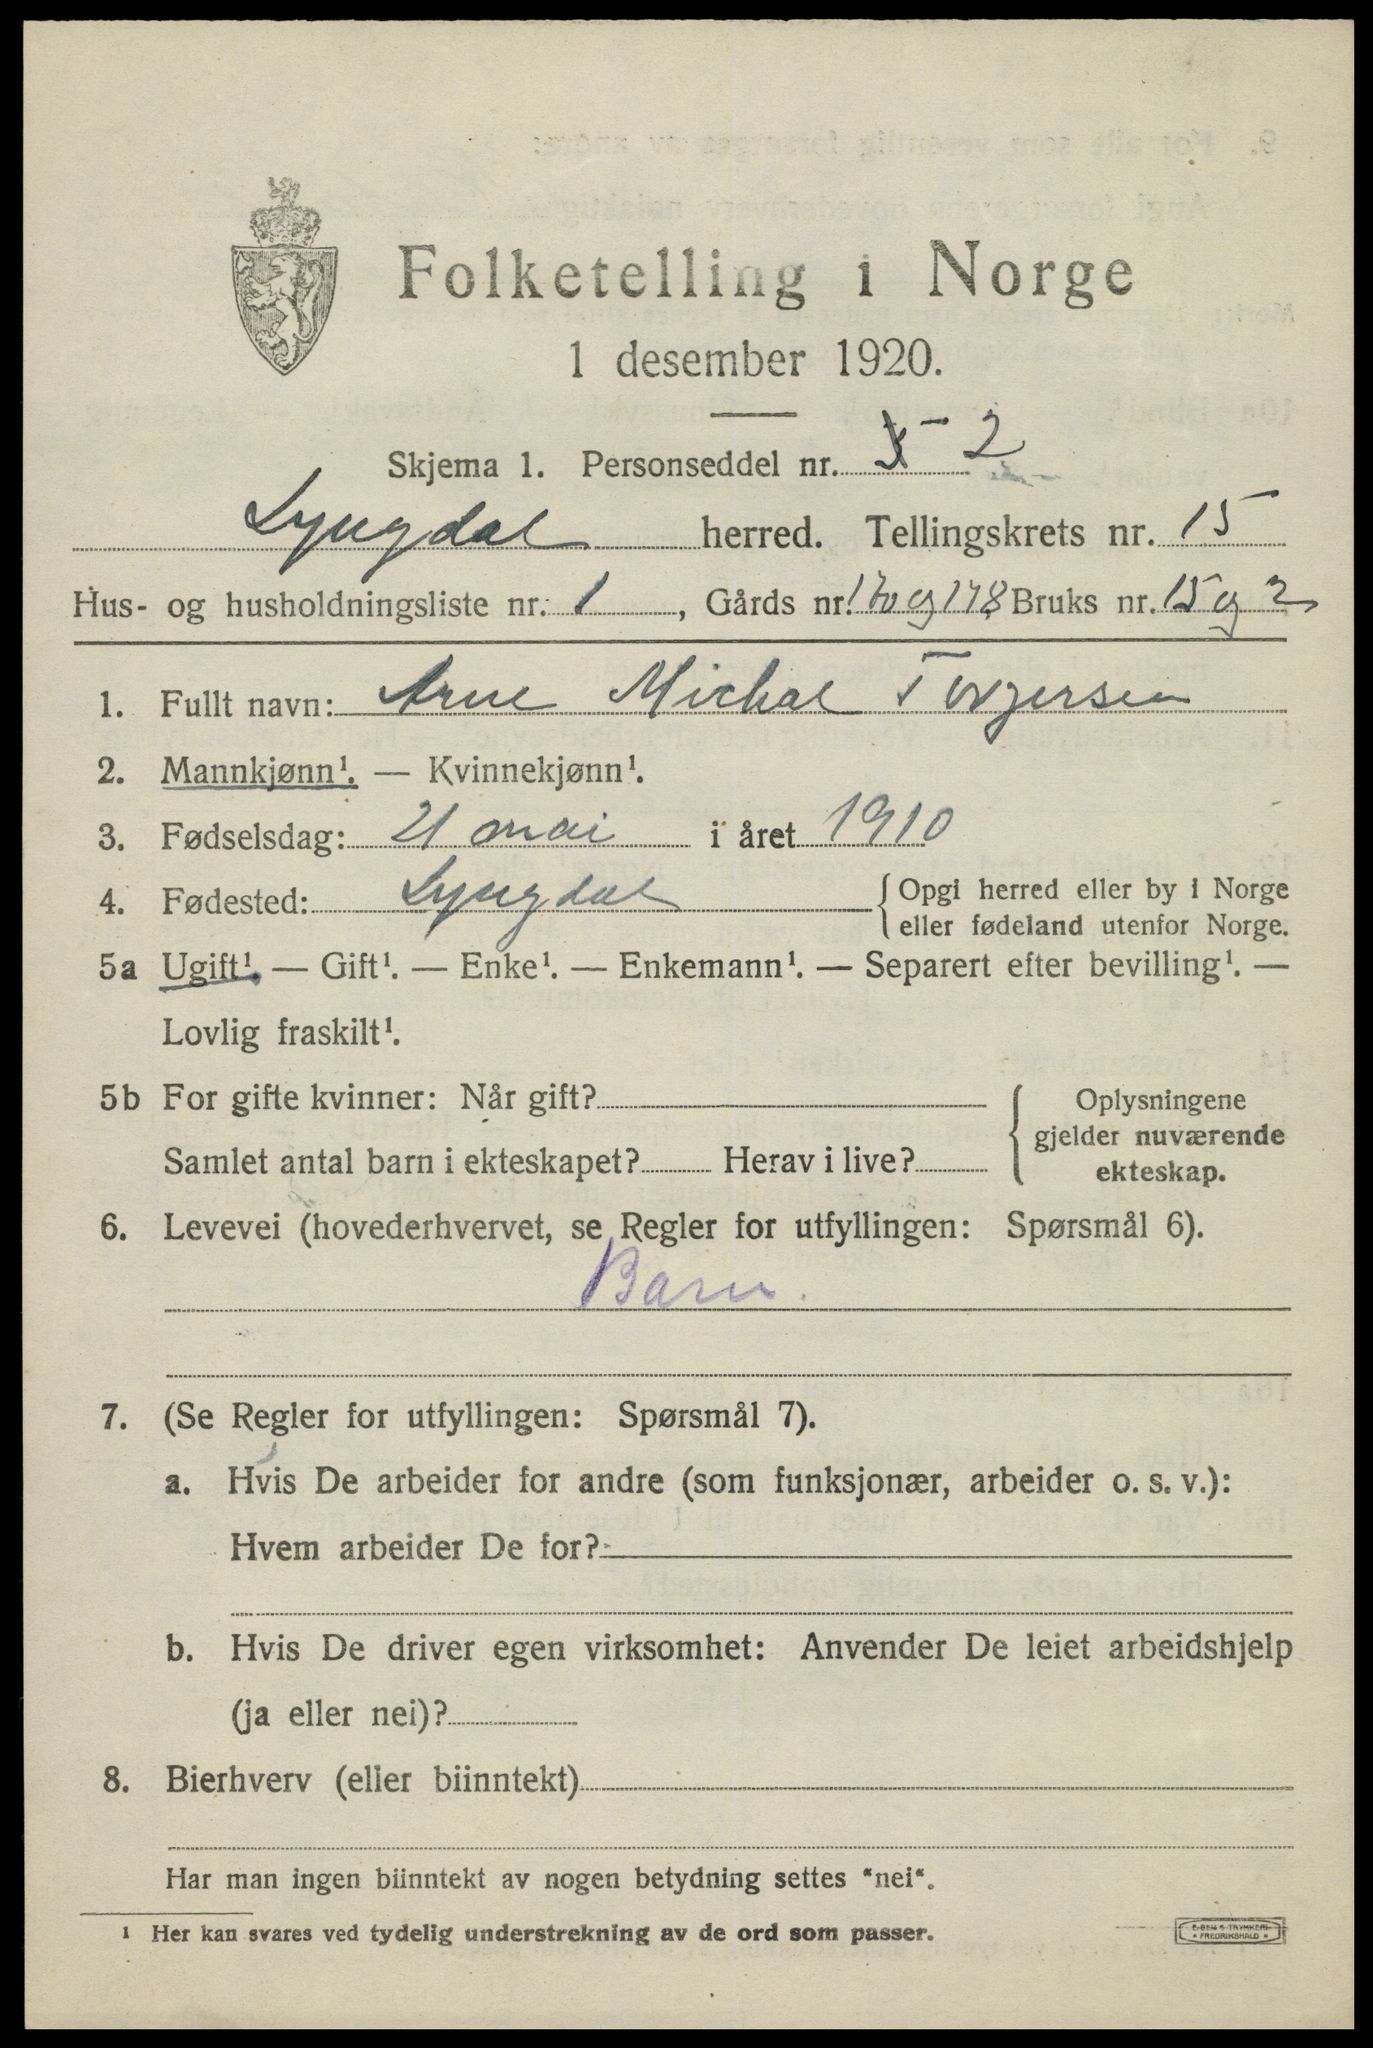 Folketelling i Norge
1 desember 1920.
Skjema 1. Personseddel nr. 2
Lyngdal herred. Tellingskrets nr. 15
Hus- og husholdningsliste nr. 1, Gårds nr. 170 og 178 Bruks nr. 15 og 2
1. Fullt navn: Arne Michal Torgersen
2. Mannkjønn¹. — Kvinnekjønn¹.
3. Fødselsdag: 21 mai i året 1910
4. Fødested: Lyngdal { Opgi herred eller by i Norge
eller fødeland utenfor Norge.
5a Ugift¹. — Gift¹. — Enke¹. — Enkemann¹. — Separert efter bevilling¹. —
Lovlig fraskilt¹.
5b For gifte kvinner: Når gift? { Oplysningene
gjelder nuværende
Samlet antal barn i ekteskapet? Herav i live?
ekteskap.
6. Levevei (hovederhvervet, se Regler for utfyllingen: Spørsmål 6).
Barn.
7. (Se Regler for utfyllingen: Spørsmål 7).
a. Hvis De arbeider for andre (som funksjonær, arbeider o. s. v.):
Hvem arbeider De for?
b. Hvis De driver egen virksomhet: Anvender De leiet arbeidshjelp
(ja eller nei)?
8. Bierhverv (eller biinntekt)
Har man ingen biinntekt av nogen betydning settes "nei".
¹ Her kan svares ved tydelig understrekning av de ord som passer.
FREDRIKSHALD